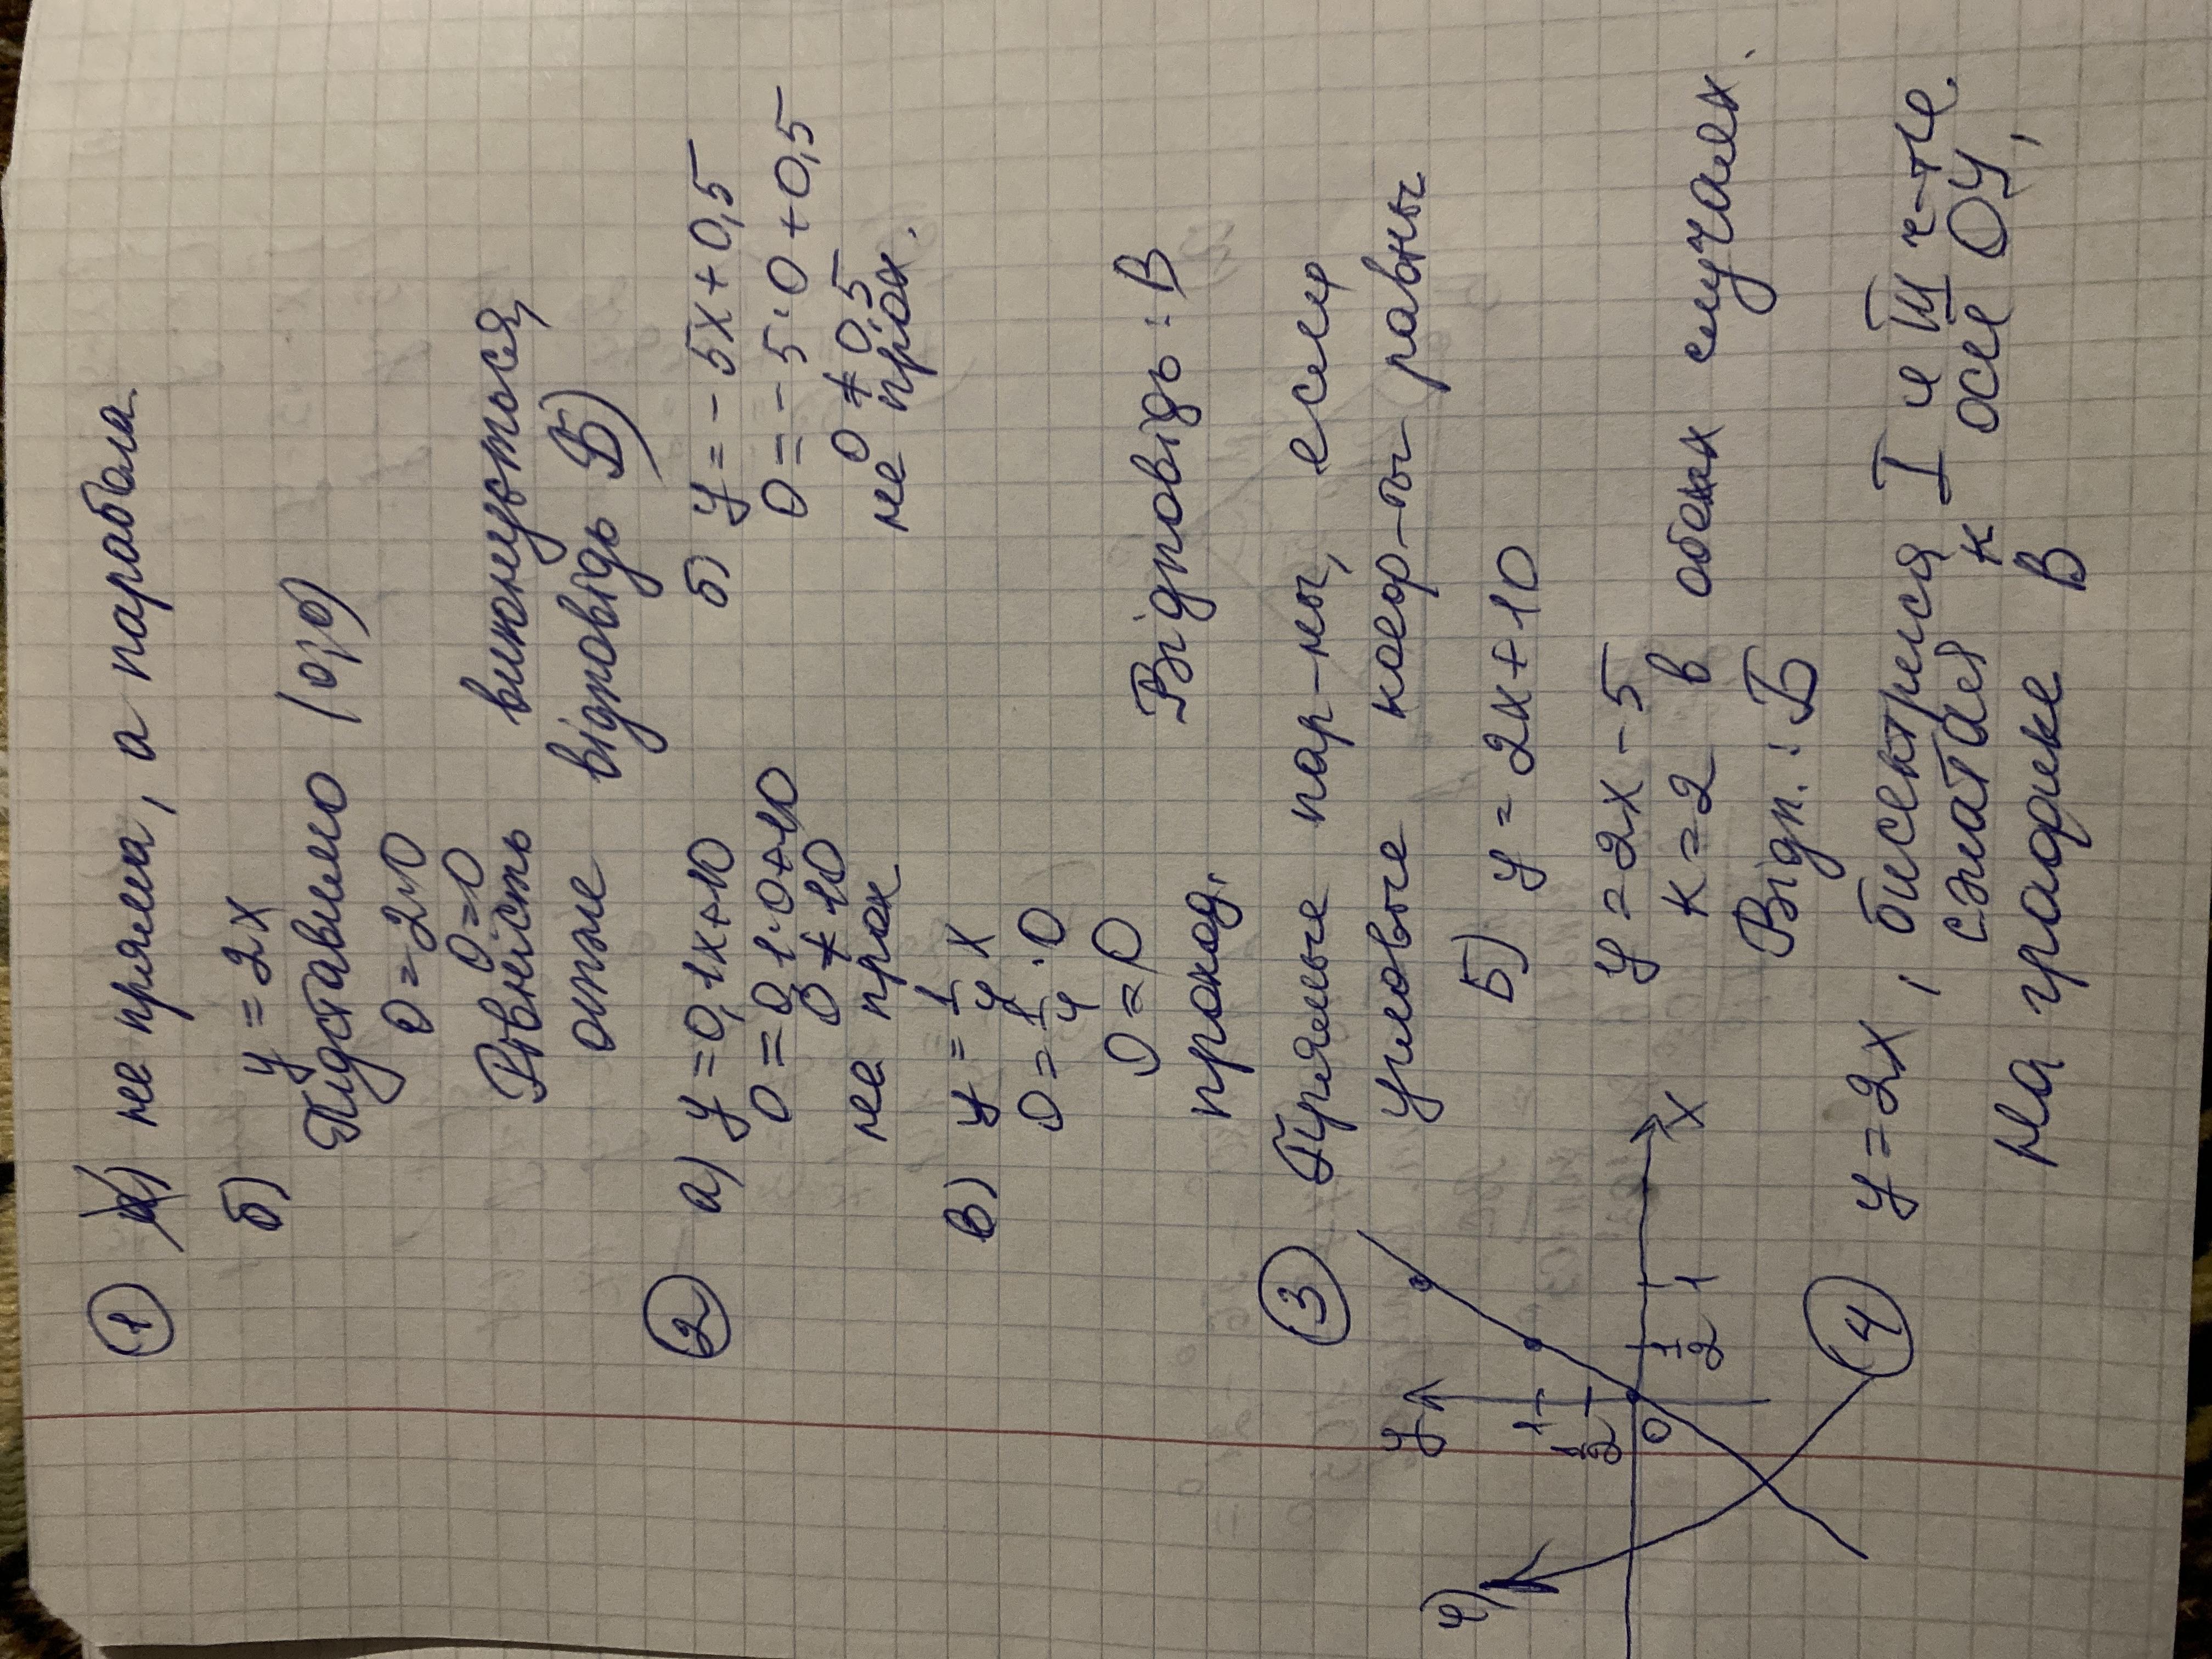 ① а) не пряма, а парабола
б) y = 2x
Підставимо (0;0)
0 = 2·0
0 = 0
Рівність виконується,
отже відповідь Б)
② а) y = 0,1x+10
0 = 0,1·0+10
0 ≠ 10
не прох
б) y = -5x+0,5
0 = -5·0+0,5
0 ≠ 0,5
не прох.
в) y = 1/4 x
0 = 1/4 · 0
0 = 0
проход.
Відповідь: В
③ Прямые пар-ны, если
угловые коеф-ты равны
Б) y = 2x+10
y = 2x-5
k = 2 в обеих случаях.
Відп.: Б
4)
y
1
1/2
0
1/2
1
x
④ y = 2x, бисектриса I и III ч-ти.
сжатая к оси OY,
на графике В